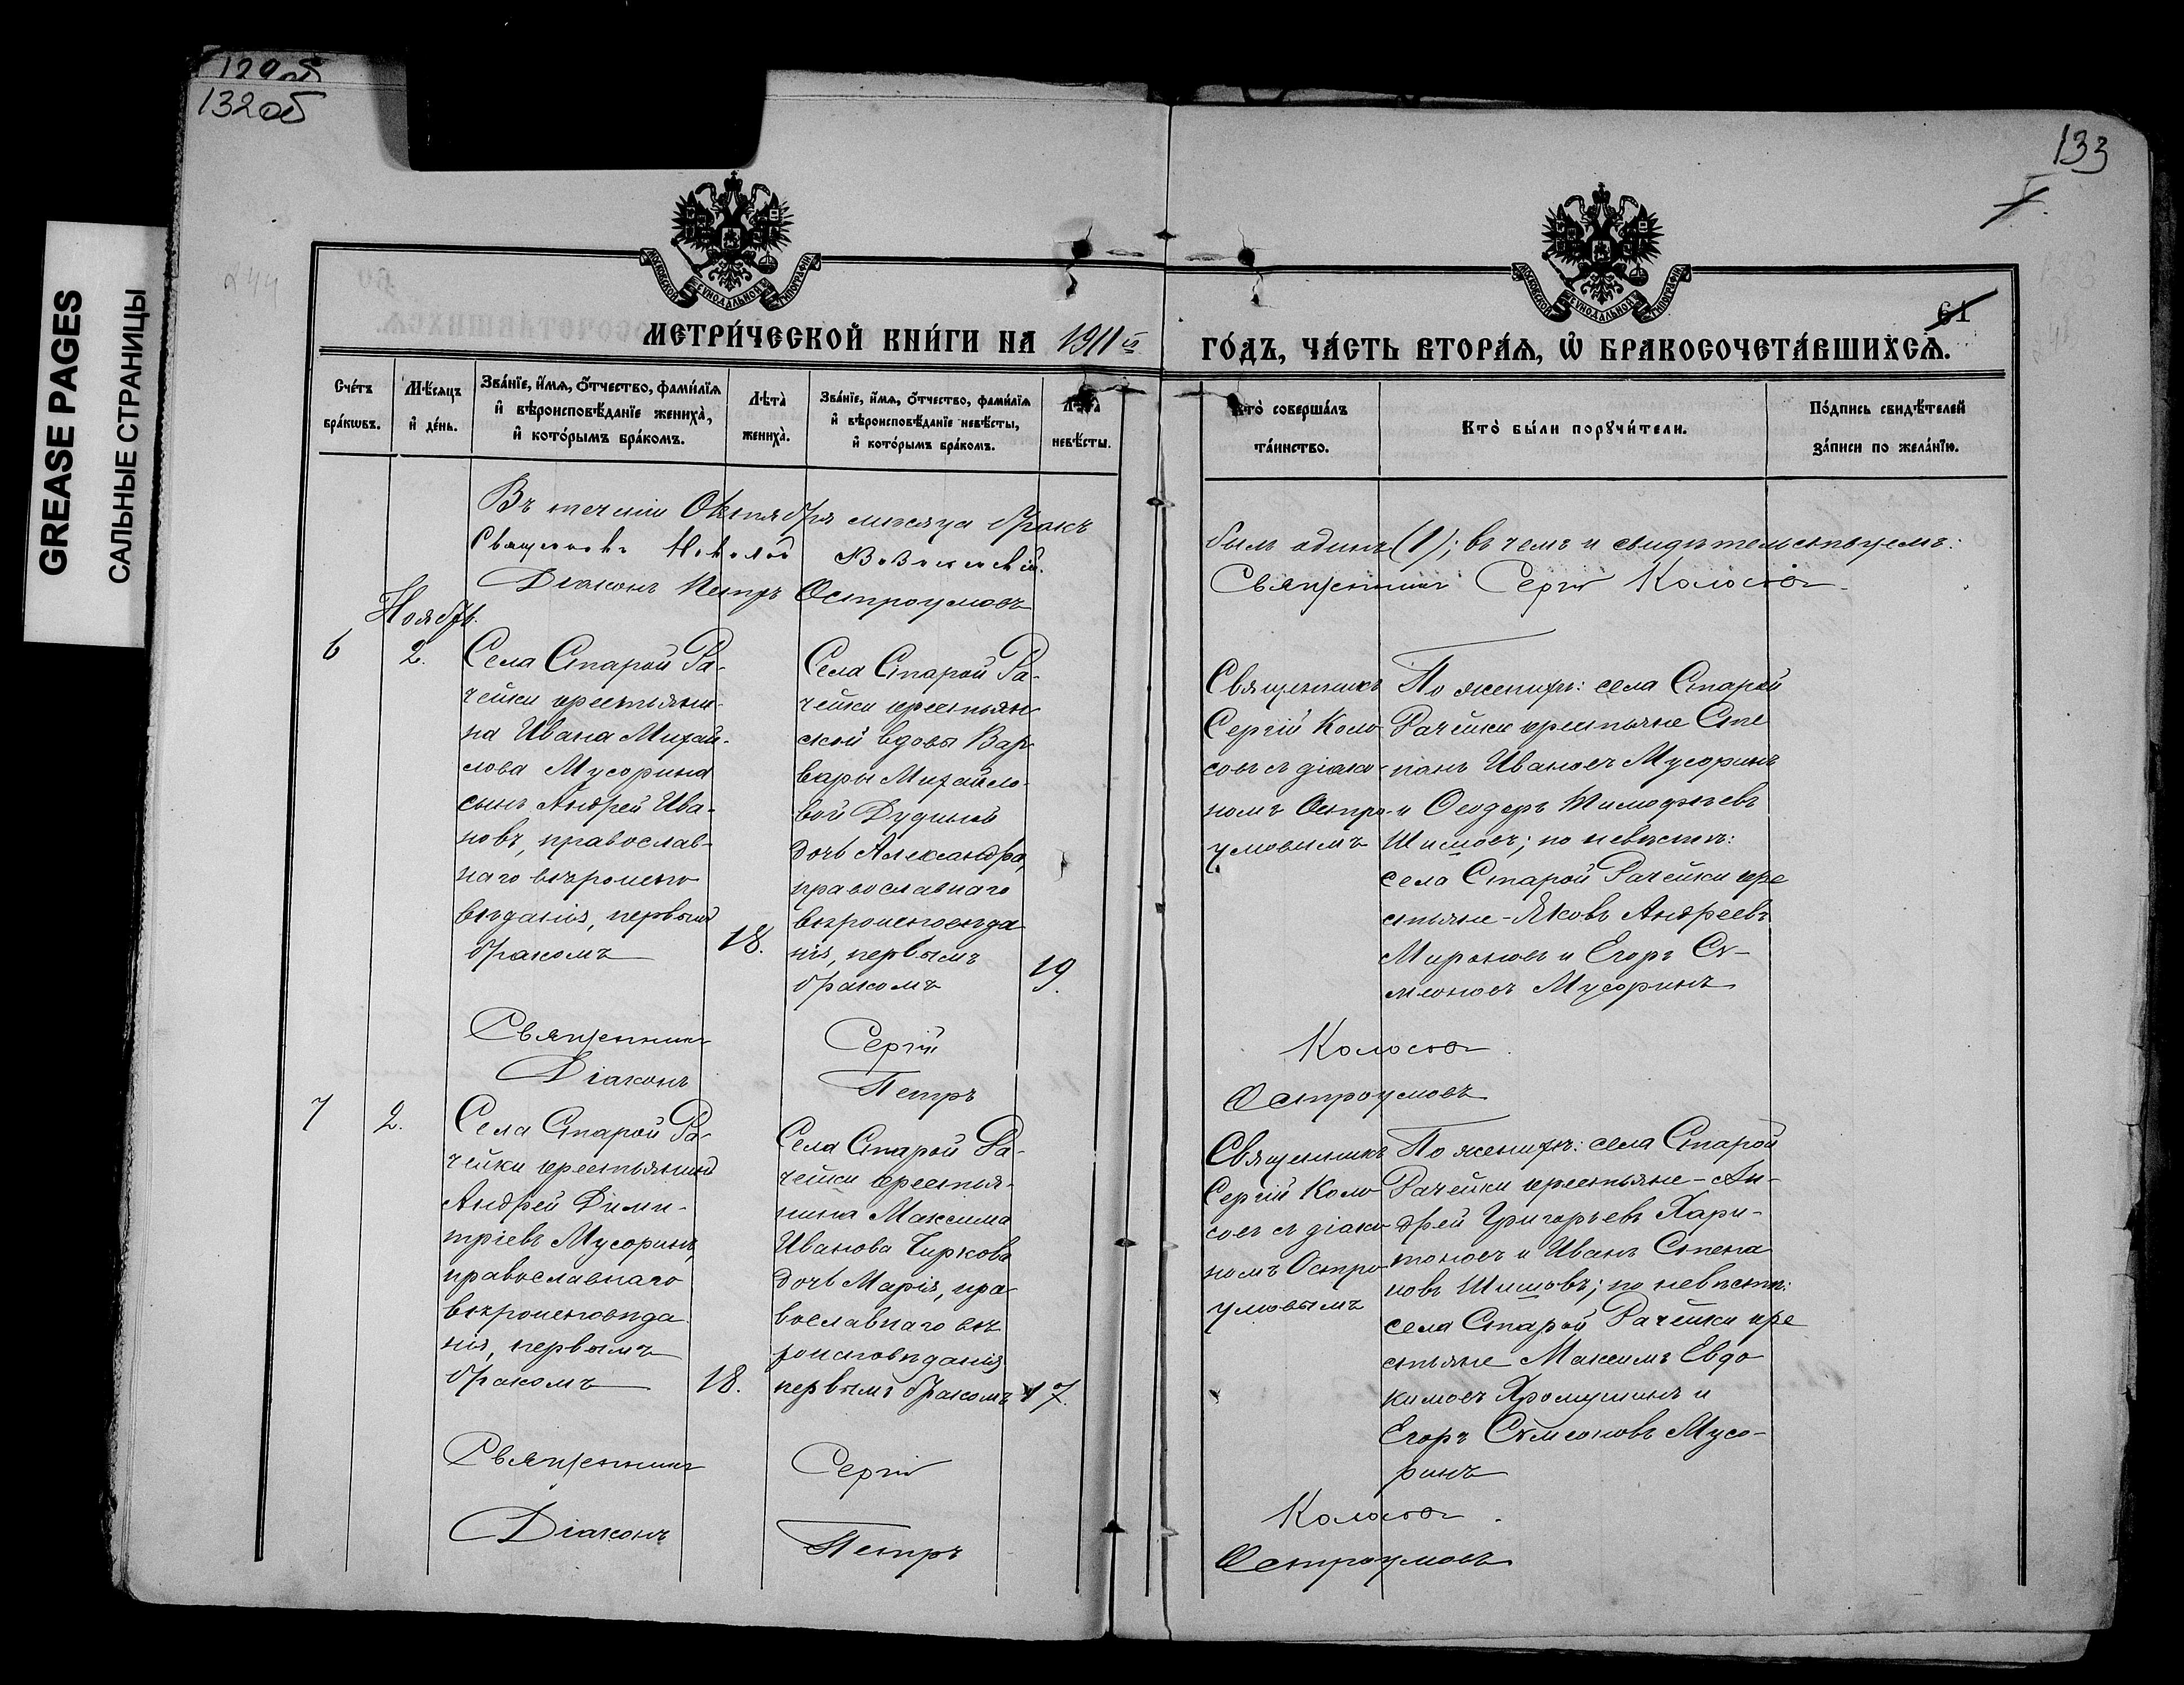 129об
132об
133
GREASE PAGES
САЛЬНЫЕ СТРАНИЦЫ
МОСКОВСКОЙ СѴНОДАЛЬНОЙ ТИПОГРАФІИ
МОСКОВСКОЙ СѴНОДАЛЬНОЙ ТИПОГРАФІИ
61
МЕТРИ́ЧЕСКОЙ КНИ́ГИ НА 1911й ГО́ДЪ, ЧА́СТЬ ВТОРА́Ѧ, Ѡ҆ БРАКОСОЧЕТА́ВШИХСѦ.
Сче́тъ бра́кѡвъ.
Мѣ́сѧцъ и҆ де́нь.
Зва́нїе, и҆́мѧ, ѻ҆́тчество, фами́лїѧ
и҆ вѣроисповѣ́данїе жениха̀,
и҆ кото́рымъ бра́комъ.
Лѣта̀ жениха̀.
Зва́нїе, и҆́мѧ, ѻ҆́тчество, фами́лїѧ
и҆ вѣроисповѣ́данїе невѣ́сты,
и҆ кото́рымъ бра́комъ.
Лѣта̀ невѣ́сты.
Кто̀ соверша́лъ та́инство.
Кто̀ бы́ли порꙋчи́тели.
По́дпись свидѣ́телей за́писи по жела́нїю.
Въ теченіи Октября мѣсяца бракъ
былъ одинъ (1); въ чемъ и свидѣтельствуемъ:
Священникъ
Священникъ Сергій Колосов
Діаконъ Петръ Остроумовъ
Ноябрь.
6
2.
Села Старой Ра-
чейки крестьяни-
на Ивана Михай-
лова Мусорина
сынъ Андрей Ива-
новъ, православ-
наго вѣроиспо
вѣданія, первымъ
бракомъ
18.
Села Старой Ра-
чейки крестьян
ской вдовы Вар
вары Михайло-
вой Дудиной
дочь Александра,
православнаго
вѣроисповѣда
нія, первымъ
бракомъ
19.
Священникъ
Сергій Коло
совъ съ діако-
номъ Остро-
умовымъ
По женихѣ: села Старой
Рачейки крестьяне Сте
панъ Ивановъ Мусоринъ
и Ѳеодоръ Тимофѣевъ
Шишовъ; по невѣстѣ:
села Старой Рачейки кре
стьяне - Яковъ Андреевъ
Мироновъ и Егоръ Сѵ-
меоновъ Мусоринъ
Священник Сергій Колосов
Діаконъ Петръ Остроумовъ
7
2.
Села Старой Ра-
чейки крестьянинъ
Андрей Дими-
тріевъ Мусоринъ,
православнаго
вѣроисповѣда
нія, первымъ
бракомъ
18.
Села Старой Ра-
чейки крестья-
нина Максима
Иванова Чиркова
дочь Марія, пра
вославнаго вѣ
роисповѣданія
первымъ бракомъ
17.
Священникъ
Сергій Коло
совъ съ діако
номъ Остро
умовымъ
По женихѣ: села Старой
Рачейки крестьяне - Ан-
дрей Григорьевъ Хари-
тоновъ и Иванъ Степа
новъ Шишовъ; по невѣстѣ:
села Старой Рачейки кре
стьяне Максимъ Евдо
кимовъ Хромушинъ и
Егоръ Сѵмеоновъ Мусо-
ринъ
Священник Сергій Колосов
Діаконъ Петръ Остроумовъ